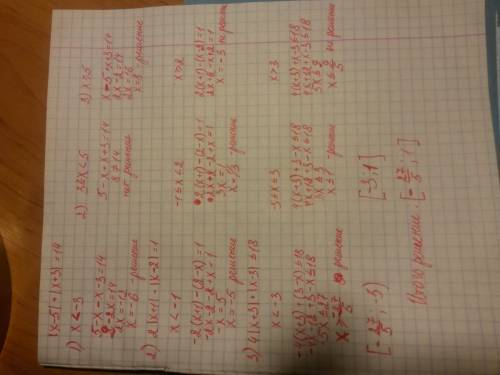 |x-5|+|x+3|=14
1) x<-3
5-x-x-3=14
2-2x=14
2x=-12
x=-6 -решение
2) 3≤x<5
5-x+x+3=14
8≠14
нет решения
3) x≥5
x-5+x+3=14
2x-2=14
2x=16
x=8 -решение
2) 2|x+1|-|x-2|=1
x<-1
-2(x+1)-(2-x)=1
-2x-2-2+x=1
-x=5
x=-5 решение
-1≤x≤2
2(x+1)-(2-x)=1
2x+2-2+x=1
3x=1
x=1/3 -решение
x>2
2(x+1)-(x-2)=1
2x+2-x+2=1
x=-3 не решение
3) 4|x+3|+|x-3|≤18
x<-3
-4(x+3)+(3-x)≤18
-4x-12+3-x≤18
-5x≤27
x≥-27/5 решение
[-27/5; -3)
-3≤x≤3
4(x+3)+3-x≤18
4x+12+3-x≤18
3x≤3
x≤1 -решение
[-3;1]
x>3
4(x+3)+x-3≤18
4x+12+x-3≤18
5x≤9
x≤9/5 не решение
Итого решение: [-27/5; 1]